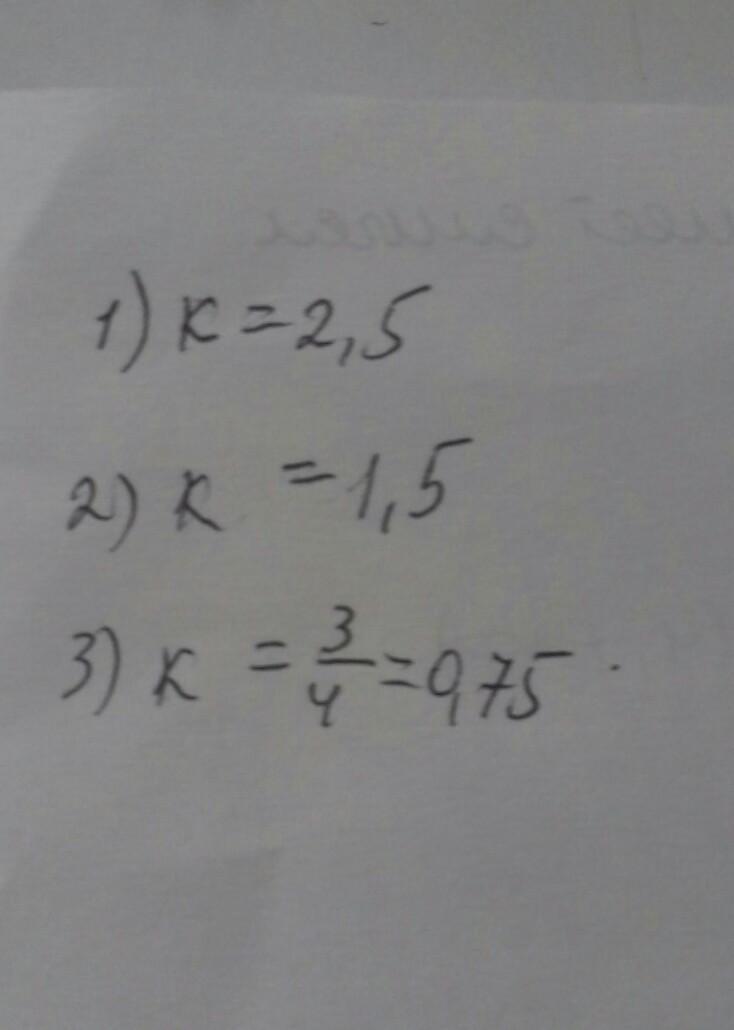 1) к = 2,5
2) к = 1,5
3) к = 3/4 = 0,75